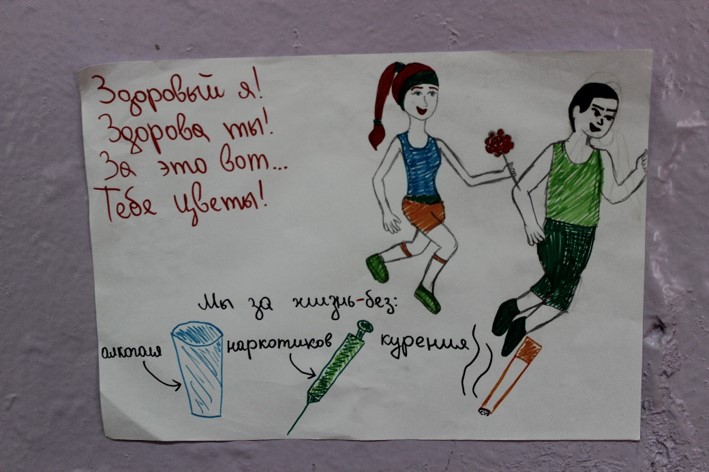 Здоровый я!
Здорова ты!
За это вот...
Тебе цветы!
Мы за жизнь-без:
алкоголя
наркотиков
курения